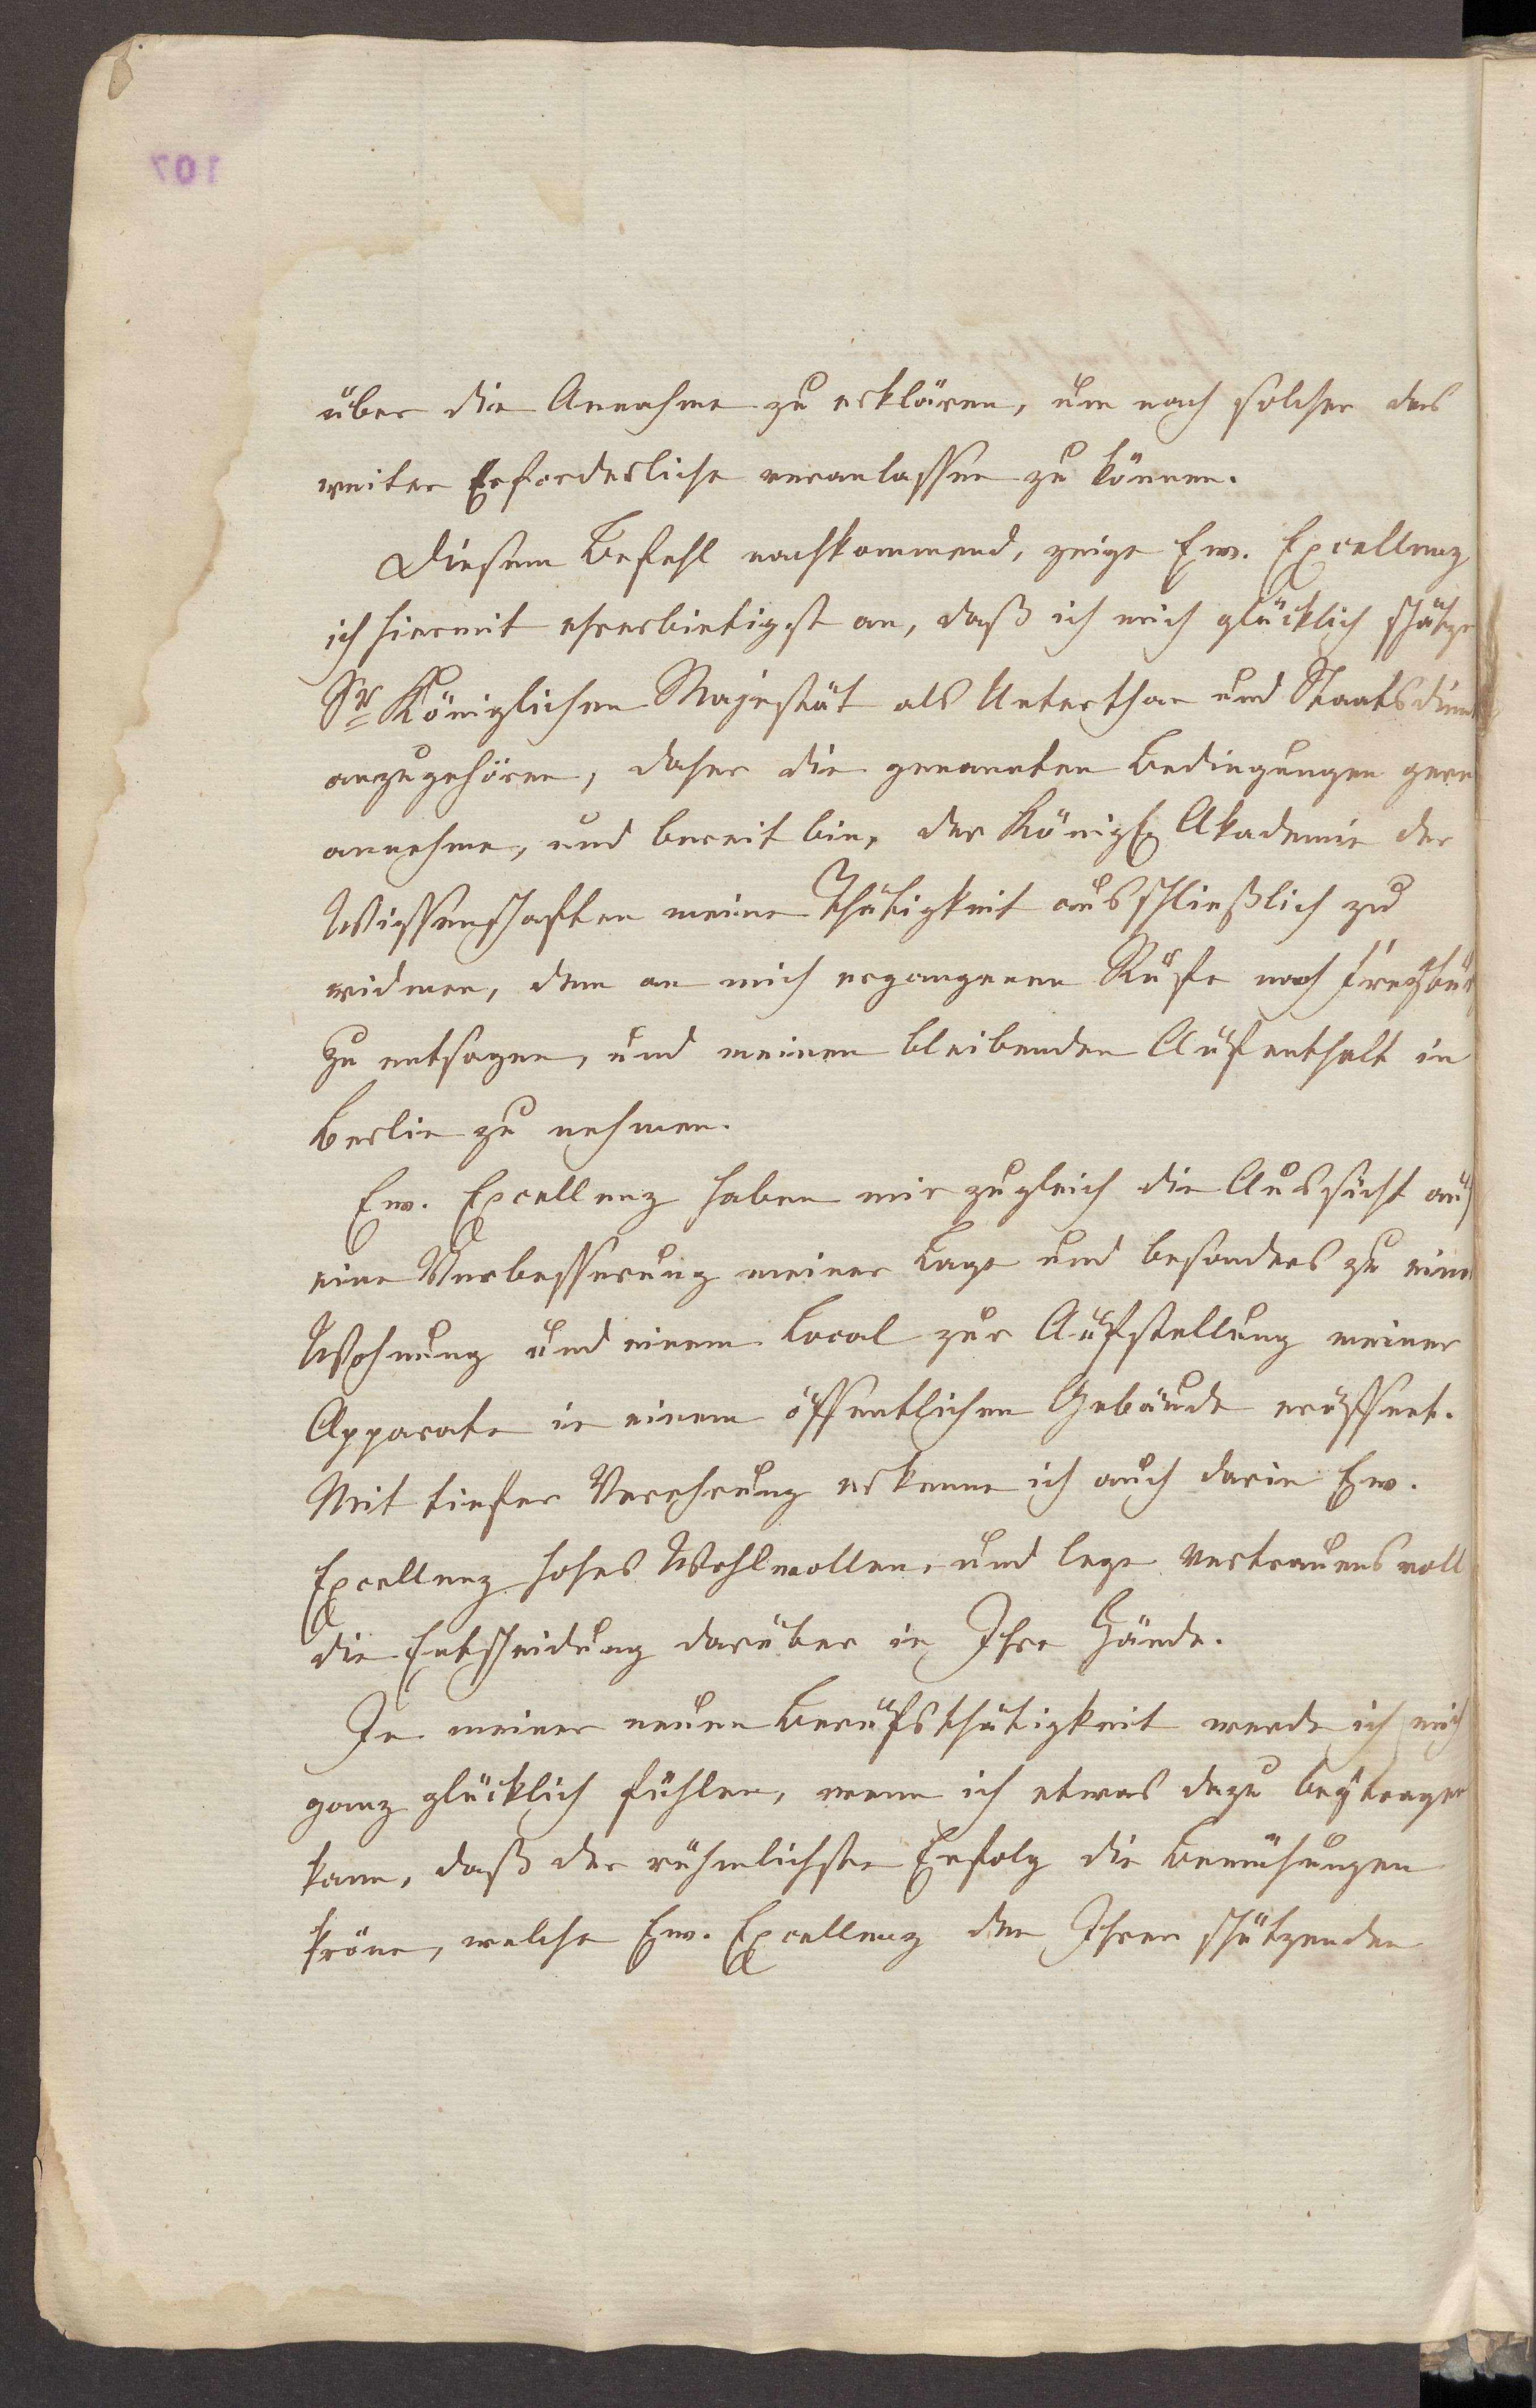 107
über die Annahme zu erklären, um nach solcher das
weiter Erforderliche veranlassen zu können.
Diesem Befehl nachkommend, zeige Ew. Excellenz
ich hiermit ehrerbietigst an, daß ich mich glücklich schätze
Sr Königlichen Majestät als Unterthan und Staatsdiener
anzugehören, daher die genannten Bedingungen gern
annehme, und bereit bin, der Königl. Akademie der
Wissenschaften meine Thätigkeit ausschließlich zu
widmen, dem an mich ergangenen Rufe nach Freyburg
zu entsagen, und meinen bleibenden Aufenthalt in
Berlin zu nehmen.
Ew. Excellenz haben mir zugleich die Aussicht auf
eine Verbesserung meiner Lage und besonders zu einer
Wohnung und einem Local zur Aufstellung meiner
Apparate in einem öffentlichen Gebäude eröffnet.
Mit tiefer Verehrung erkenne ich auch darin Ew.
Excellenz hohes Wohlwollen, und lege vertrauensvoll
die Entscheidung darüber in Ihre Hände.
In meiner neuen Berufsthätigkeit werde ich mich
ganz glücklich fühlen, wenn ich etwas dazu beytragen
kann, daß der rühmlichste Erfolg die Bemühungen
kröne, welche Ew. Excellenz den Ihren schützenden